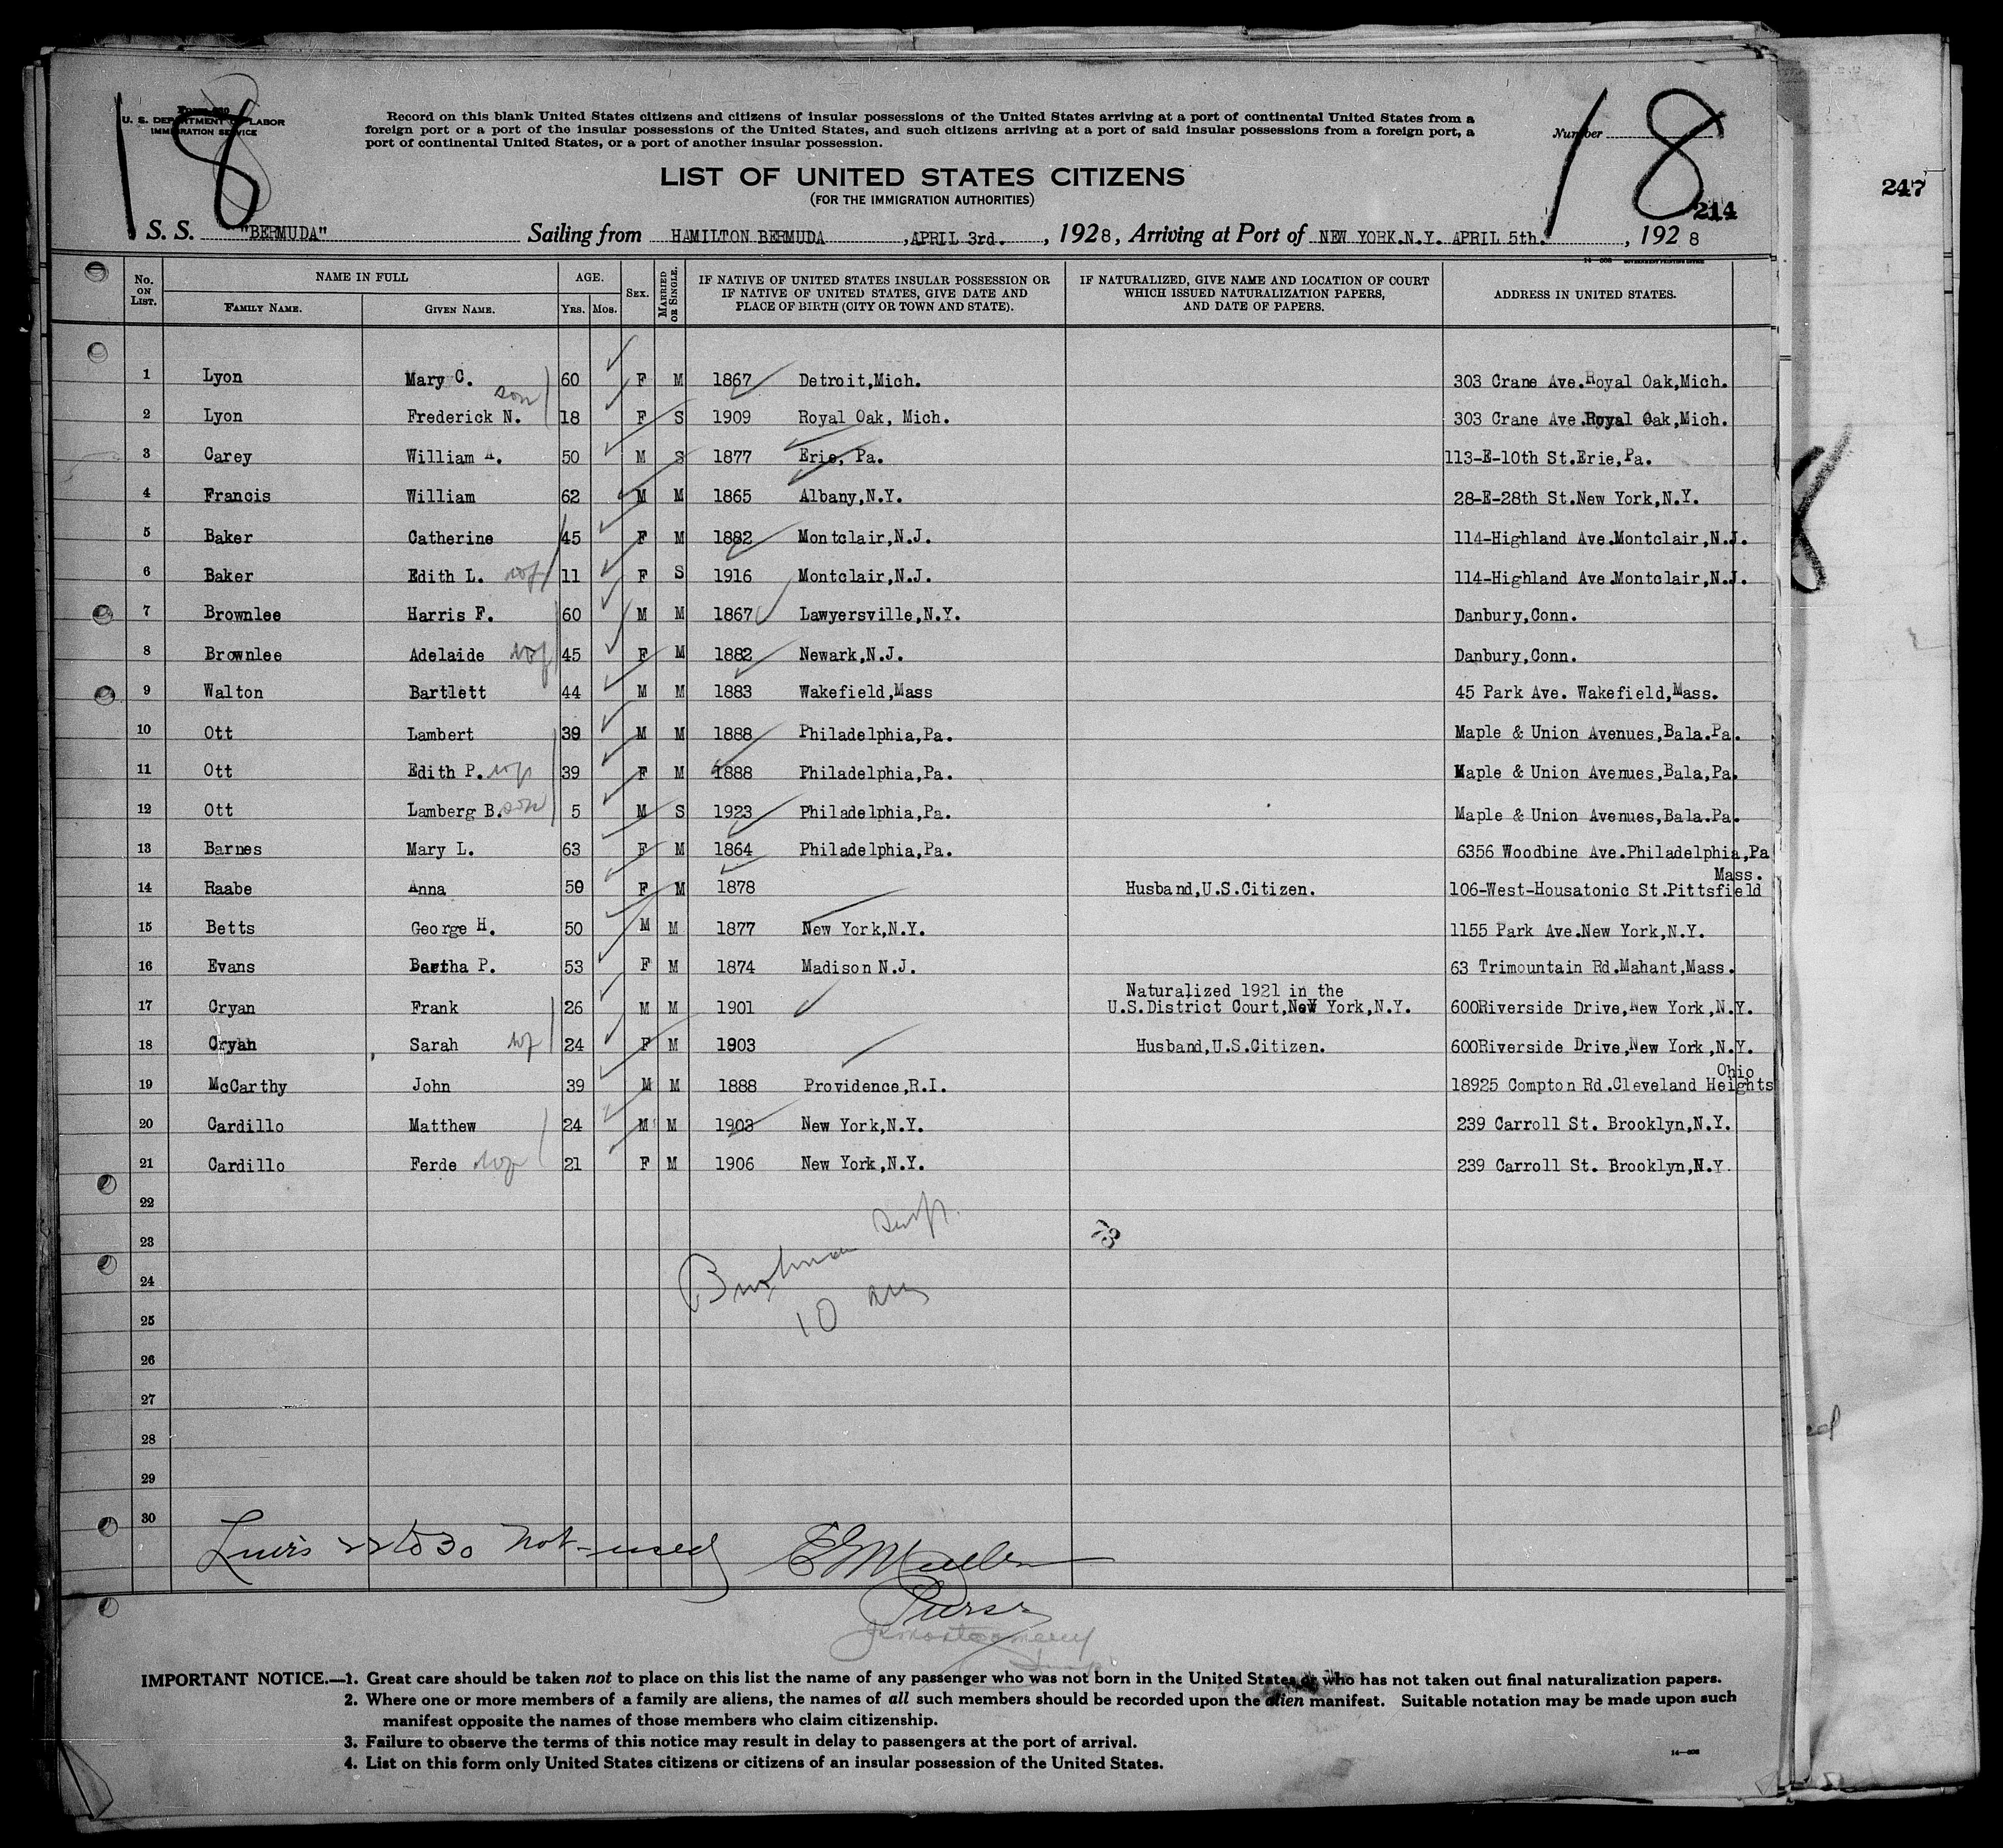 18
Form 630
U. S. DEPARTMENT OF LABOR
IMMIGRATION SERVICE
Record on this blank United States citizens and citizens of insular possessions of the United States arriving at a port of continental United States from a
foreign port or a port of the insular possessions of the United States, and such citizens arriving at a port of said insular possessions from a foreign port, a
port of continental United States, or a port of another insular possession.
Number
18
247
LIST OF UNITED STATES CITIZENS
(FOR THE IMMIGRATION AUTHORITIES)
214
S. S. "BERMUDA" Sailing from HAMILTON BERMUDA ,APRIL 3rd. , 1928, Arriving at Port of NEW YORK.N.Y. APRIL 5th. , 1928
No. ON LIST. NAME IN FULL FAMILY NAME. GIVEN NAME. AGE. YRS. MOS. SEX. MARRIED OR SINGLE. IF NATIVE OF UNITED STATES INSULAR POSSESSION OR IF NATIVE OF UNITED STATES, GIVE DATE AND PLACE OF BIRTH (CITY OR TOWN AND STATE). IF NATURALIZED, GIVE NAME AND LOCATION OF COURT WHICH ISSUED NATURALIZATION PAPERS, AND DATE OF PAPERS. ADDRESS IN UNITED STATES.
1 Lyon Mary C. 60 F M 1867 Detroit,Mich. 303 Crane Ave.Royal Oak,Mich.
2 Lyon Frederick N. son 18 F S 1909 Royal Oak, Mich. 303 Crane Ave.Royal Oak,Mich.
3 Carey William A. 50 M S 1877 Erie, Pa. 113-E-10th St.Erie,Pa.
4 Francis William 62 M M 1865 Albany,N.Y. 28-E-28th St.New York,N.Y.
5 Baker Catherine 45 F M 1882 Montclair,N.J. 114-Highland Ave.Montclair,N.J.
6 Baker Edith L. 11 F S 1916 Montclair,N.J. 114-Highland Ave.Montclair,N.J.
7 Brownlee Harris F. 60 M M 1867 Lawyersville,N.Y. Danbury,Conn.
8 Brownlee Adelaide wf 45 F M 1882 Newark,N.J. Danbury,Conn.
9 Walton Bartlett 44 M M 1883 Wakefield,Mass 45 Park Ave. Wakefield,Mass.
10 Ott Lambert 39 M M 1888 Philadelphia,Pa. Maple & Union Avenues,Bala.Pa.
11 Ott Edith P. wf 39 F M 1888 Philadelphia,Pa. Maple & Union Avenues,Bala,Pa.
12 Ott Lamberg B. son 5 M S 1923 Philadelphia,Pa. Maple & Union Avenues,Bala.Pa.
13 Barnes Mary L. 63 F M 1864 Philadelphia,Pa. 6356 Woodbine Ave.Philadelphia,Pa
14 Raabe Anna 50 F M 1878 Husband,U.S.Citizen. 106-West-Housatonic St.Pittsfield Mass.
15 Betts George H. 50 M M 1877 New York,N.Y. 1155 Park Ave.New York,N.Y.
16 Evans Bertha P. 53 F M 1874 Madison N.J. 63 Trimountain Rd.Mahant,Mass.
17 Cryan Frank 26 M M 1901 Naturalized 1921 in the U.S.District Court,New York,N.Y. 600Riverside Drive,New York,N.Y.
18 Cryan Sarah wf 24 F M 1903 Husband,U.S.Citizen. 600Riverside Drive,New York,N.Y.
19 McCarthy John 39 M M 1888 Providence,R.I. 18925 Compton Rd.Cleveland Heights Ohio
20 Cardillo Matthew 24 M M 1903 New York,N.Y. 239 Carroll St. Brooklyn,N.Y.
21 Cardillo Ferde wf 21 F M 1906 New York,N.Y. 239 Carroll St. Brooklyn,N.Y.
22
23 73
24
25 10
26
27
28
29
30
Lines 22 to 30 not used
Purser
IMPORTANT NOTICE.—1. Great care should be taken not to place on this list the name of any passenger who was not born in the United States or who has not taken out final naturalization papers.
2. Where one or more members of a family are aliens, the names of all such members should be recorded upon the alien manifest. Suitable notation may be made upon such
manifest opposite the names of those members who claim citizenship.
3. Failure to observe the terms of this notice may result in delay to passengers at the port of arrival.
4. List on this form only United States citizens or citizens of an insular possession of the United States.